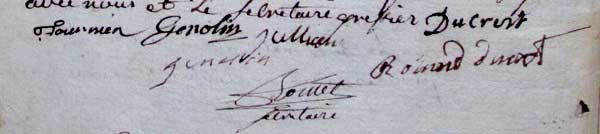 avec nous et le secretaire greffier Ducroit
fournier Genolin Jullien
genolin Roland ducroit
Bouet
secretaire